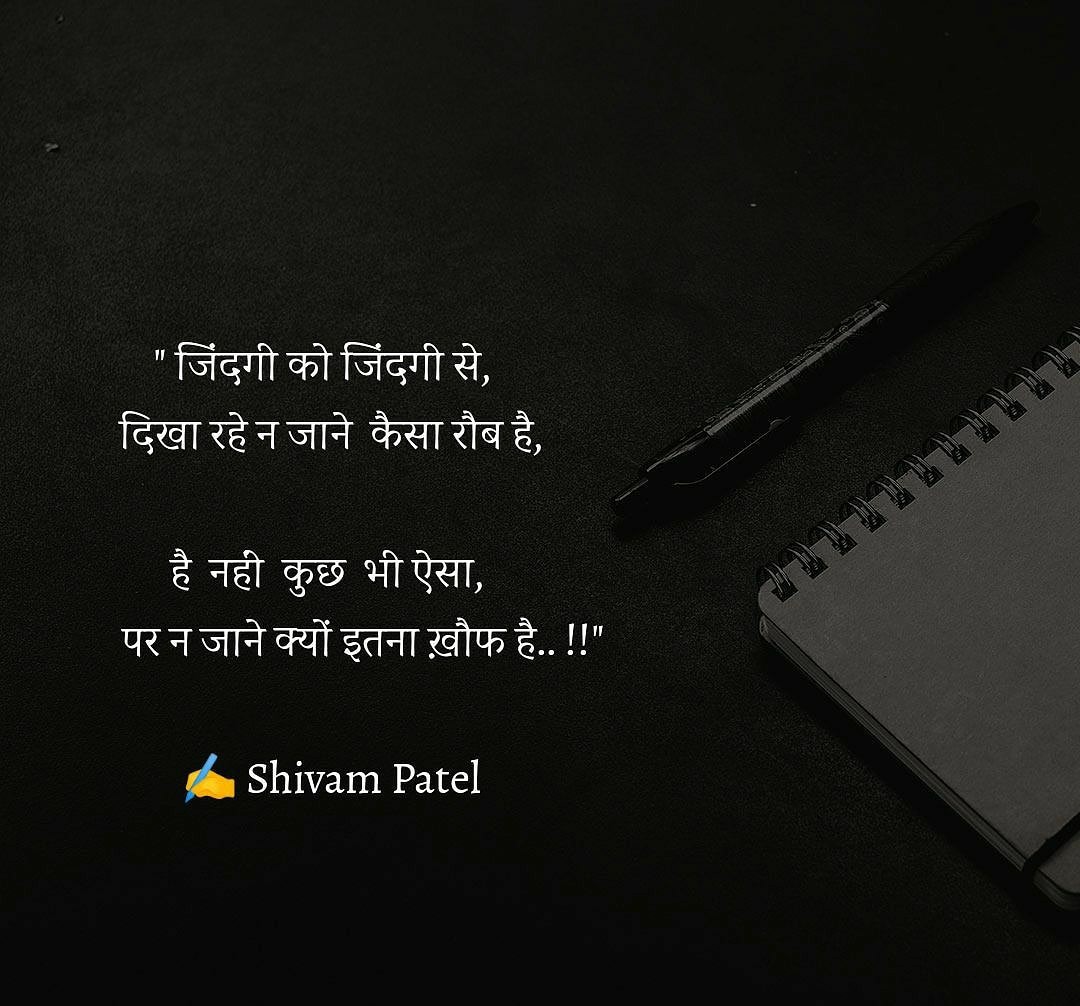 " जिंदगी को जिंदगी से,
दिखा रहे न जाने कैसा रौब है,
है नहीं कुछ भी ऐसा,
पर न जाने क्यों इतना ख़ौफ है.. !!"
✍️ Shivam Patel